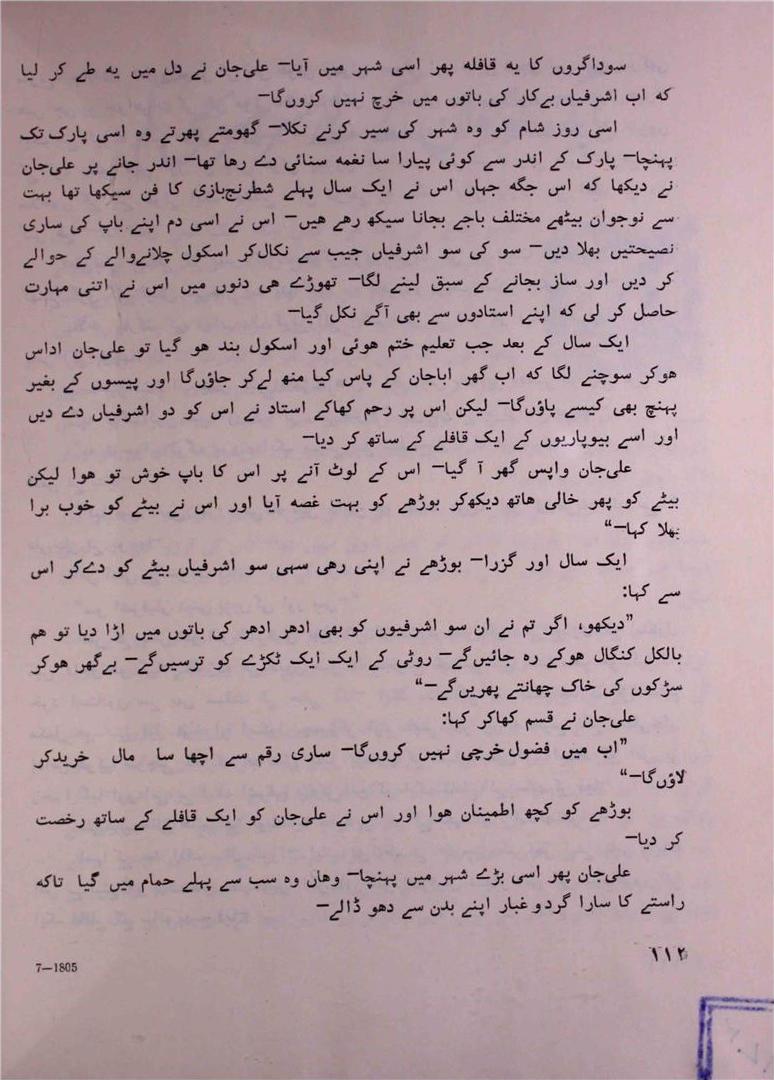 سوداگروں کا یہ قافلہ پھر اسی شہر میں آیا— علی‌جان نے دل میں یہ طے کر لیا
کہ اب اشرفیاں بےکار کی باتوں میں خرچ نہیں کروں‌گا—
اسی روز شام کو وہ شہر کی سیر کرنے نکلا— گھومتے پھرتے وہ اسی پارک تک
پہنچا— پارک کے اندر سے کوئی پیارا سا نغمہ سنائی دے رھا تھا— اندر جانے پر علی‌جان
نے دیکھا کہ اس جگہ جہاں اس نے ایک سال پہلے شطرنج‌بازی کا فن سیکھا تھا بہت
سے نوجوان بیٹھے مختلف باجے بجانا سیکھ رھے ھیں— اس نے اسی دم اپنے باپ کی ساری
نصیحتیں بھلا دیں— سو کی سو اشرفیاں جیب سے نکال‌کر اسکول چلانےوالے کے حوالے
کر دیں اور ساز بجانے کے سبق لینے لگا— تھوڑے ھی دنوں میں اس نے اتنی مہارت
حاصل کر لی کہ اپنے استادوں سے بھی آگے نکل گیا—
ایک سال کے بعد جب تعلیم ختم ھوئی اور اسکول بند ھو گیا تو علی‌جان اداس
ھوکر سوچنے لگا کہ اب گھر اباجان کے پاس کیا منھ لےکر جاؤں‌گا اور پیسوں کے بغیر
پہنچ بھی کیسے پاؤں‌گا— لیکن اس پر رحم کھاکے استاد نے اس کو دو اشرفیاں دے دیں
اور اسے بیوپاریوں کے ایک قافلے کے ساتھ کر دیا—
علی‌جان واپس گھر آ گیا— اس کے لوٹ آنے پر اس کا باپ خوش تو ھوا لیکن
بیٹے کو پھر خالی ھاتھ دیکھ‌کر بوڑھے کو بہت غصہ آیا اور اس نے بیٹے کو خوب برا
بھلا کہا—“
ایک سال اور گزرا— بوڑھے نے اپنی رھی سہی سو اشرفیاں بیٹے کو دےکر اس
سے کہا:
”دیکھو، اگر تم نے ان سو اشرفیوں کو بھی ادھر ادھر کی باتوں میں اڑا دیا تو ھم
بالکل کنگال ھوکے رہ جائیں‌گے— روٹی کے ایک ایک ٹکڑے کو ترسیں‌گے— بےگھر ھوکر
سڑکوں کی خاک چھانتے پھریں‌گے—“
علی‌جان نے قسم کھاکر کہا:
”اب میں فضول‌خرچی نہیں کروں‌گا— ساری رقم سے اچھا سا مال خریدکر
لاؤں‌گا—“
بوڑھے کو کچھ اطمینان ھوا اور اس نے علی‌جان کو ایک قافلے کے ساتھ رخصت
کر دیا—
علی‌جان پھر اسی بڑے شہر میں پہنچا— وھاں وہ سب سے پہلے حمام میں گیا تاکہ
راستے کا سارا گرد و غبار اپنے بدن سے دھو ڈالے—
۱۱۲
7—1805